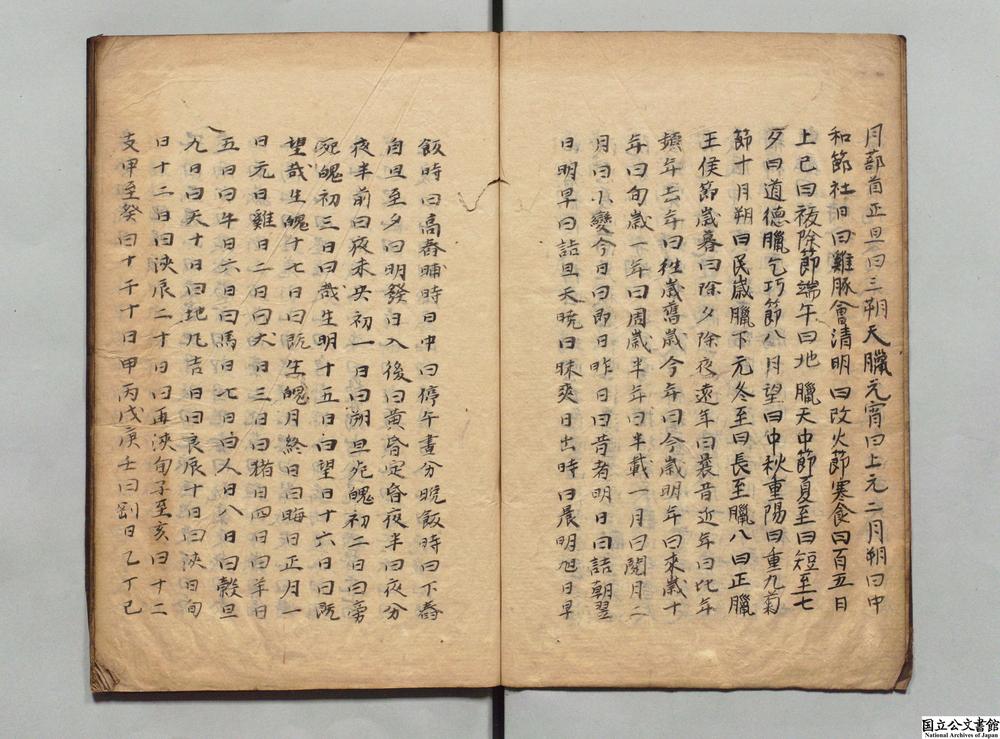 月蔀首正旦曰三朔天臘元宵曰上元二月朔曰中
和節社日曰雞豚會清明曰改火節寒食曰百五日
上巳曰祓除節端午曰地臘天中節夏至曰短至七
夕曰道德臘乞巧節八月望曰中秋重陽曰重九菊
節十月朔曰民歲臘下元冬至曰長至臘八曰正臘
王侯節歲暮曰除夕除夜遠年曰曩昔近年曰比年
頻年去年曰徃歲舊歲今年曰今歲明年曰來歲十
年曰旬歲一年曰周歲半年曰半載一月曰閱月二
月曰小變今日曰即日昨日曰昔者明日曰詰朝翌
日明早曰詰旦天曉曰昧爽日出時曰晨明旭日早
飯時曰高舂晡時日中曰停午晝分晚飯時曰下舂
自旦至夕曰明發日入後曰黃昏定昏夜半曰夜分
夜半前曰夜未央初一日曰朔旦死魄初二日曰旁
死魄初三日曰哉生明十五日曰望日十六日曰既
望哉生魄十七日曰既生魄月終日曰晦日正月一
日元日雞日二日曰犬日三日曰猪日四日曰羊日
五日曰牛日六日曰馬日七日曰人日八日曰穀旦
九日曰天十日曰地九吉日曰良辰十日曰浹日旬
日十二日曰浹辰二十日曰再浹旬子至亥曰十二
支甲至癸曰十干十日甲丙戊庚壬曰剛日乙丁己
国立公文書館
National Archives of Japan